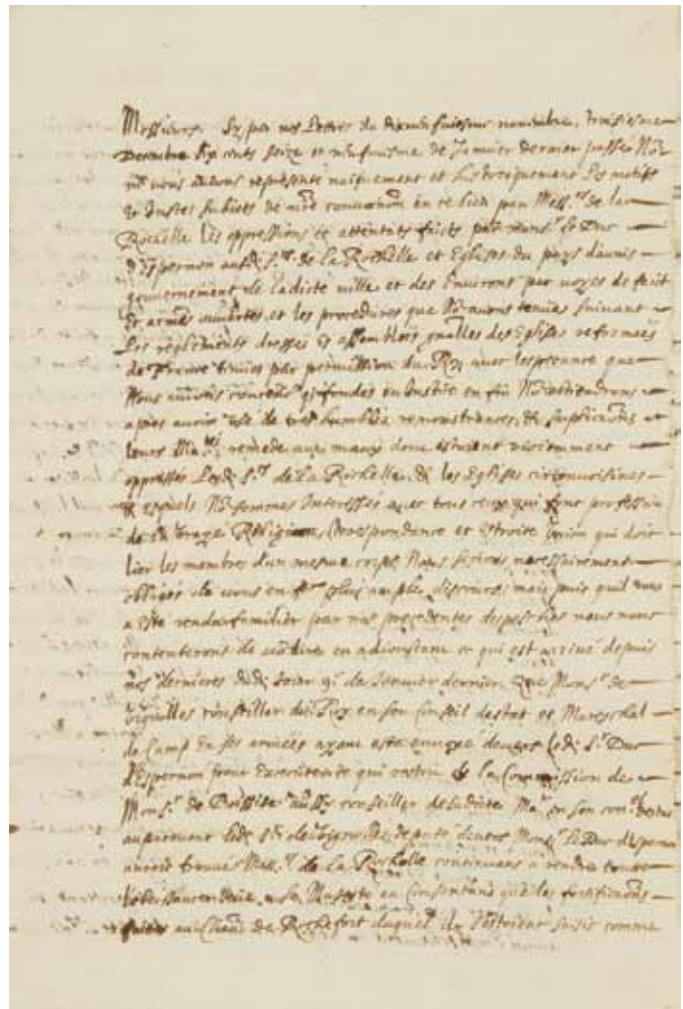 Messieurs. Sy par nos Lettres du dixneufuiesme nouembre, troisiesme
Decembre six cents seize et neufuiesme de Januier dernier passé No9
ne vous auions representé naifuement et historiquement les motifs
et Justes subiets de nre conuoca͠on en ce lieu par Mess.rs de la
Rochelle les oppressions et attentats faicts par Mons.r le Duc
d'Espernon ausd. s.rs de la Rochelle et Eglises du pays d'aunis
gouuernement de ladicte ville et des Enuirons par voyes de fait
et armes ouuertes, et les procedures que No9 auons tenues suiuant
Les reglements dressés es assemblées gnalles des Eglises reformées
de France tenues par permission du Roy auec les
Nous en Justice en fin No9 obtiendrons
apres auoir usé de tres humbles remonstrances, & suplica͠ons a
leurs Ma.tez remede aux maux dont estoient
oppressés Lesd. s.rs de La Rochelle & les Eglises circonuoisines
es quels No9 sommes Interessés auec tous ceux qui font profession
de la vraye Religion, Correspondance et estroite Vnion qui doit
lier les membres d'un mesme corps Nous serions necessairement
obligés de vous en fre plus ample discours, mais puis quil vous
a esté rendu familier par nos precedentes despesches nous nous
contenterons de en adioustant ce qui est arriué depuis
nos dernieres dud. Jour 9.e de Januier dernier, Que Mons.r de
Vignolles conseiller du Roy en son Conseil destat et Mareschal
de Camp En ses armées ayant esté enuoyé deuers led. s.r Duc
d'Espernon pour de la Commission de
Mons.r de Boissise aussy conseiller de sadicte Ma.té en son con.el destat
auparauant led. s.r de Vignolles deputé deuers Mons.r le Duc d'Espernon
auroit trouué Mess.rs de la Rochelle continuans a rendre toute
obeissance deüe a sa Majesté au Consentans que les fortifica͠ons
faites au Chau͠ de Rochefort duquel Ils s'estoient saisis comme